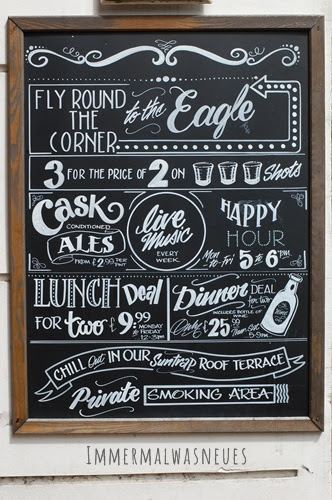 FLY ROUND
THE
CORNER
to the Eagle
3 FOR THE PRICE OF 2 ON Shots
Cask
CONDITIONED
ALES
FROM £2.99 PER PINT
live
Music
EVERY
WEEK
HAPPY
HOUR
Mon to Fri 5 to 6 pm
LUNCH Deal
FOR two £9.99
MONDAY
FRIDAY
12-3pm
Dinner DEAL
for two
INCLUDES BOTTLE OF
WINE
Only £25
CHILL Out IN OUR Suntrap ROOF TERRACE
Private SMOKING AREA
IMMERMALWASNEUES